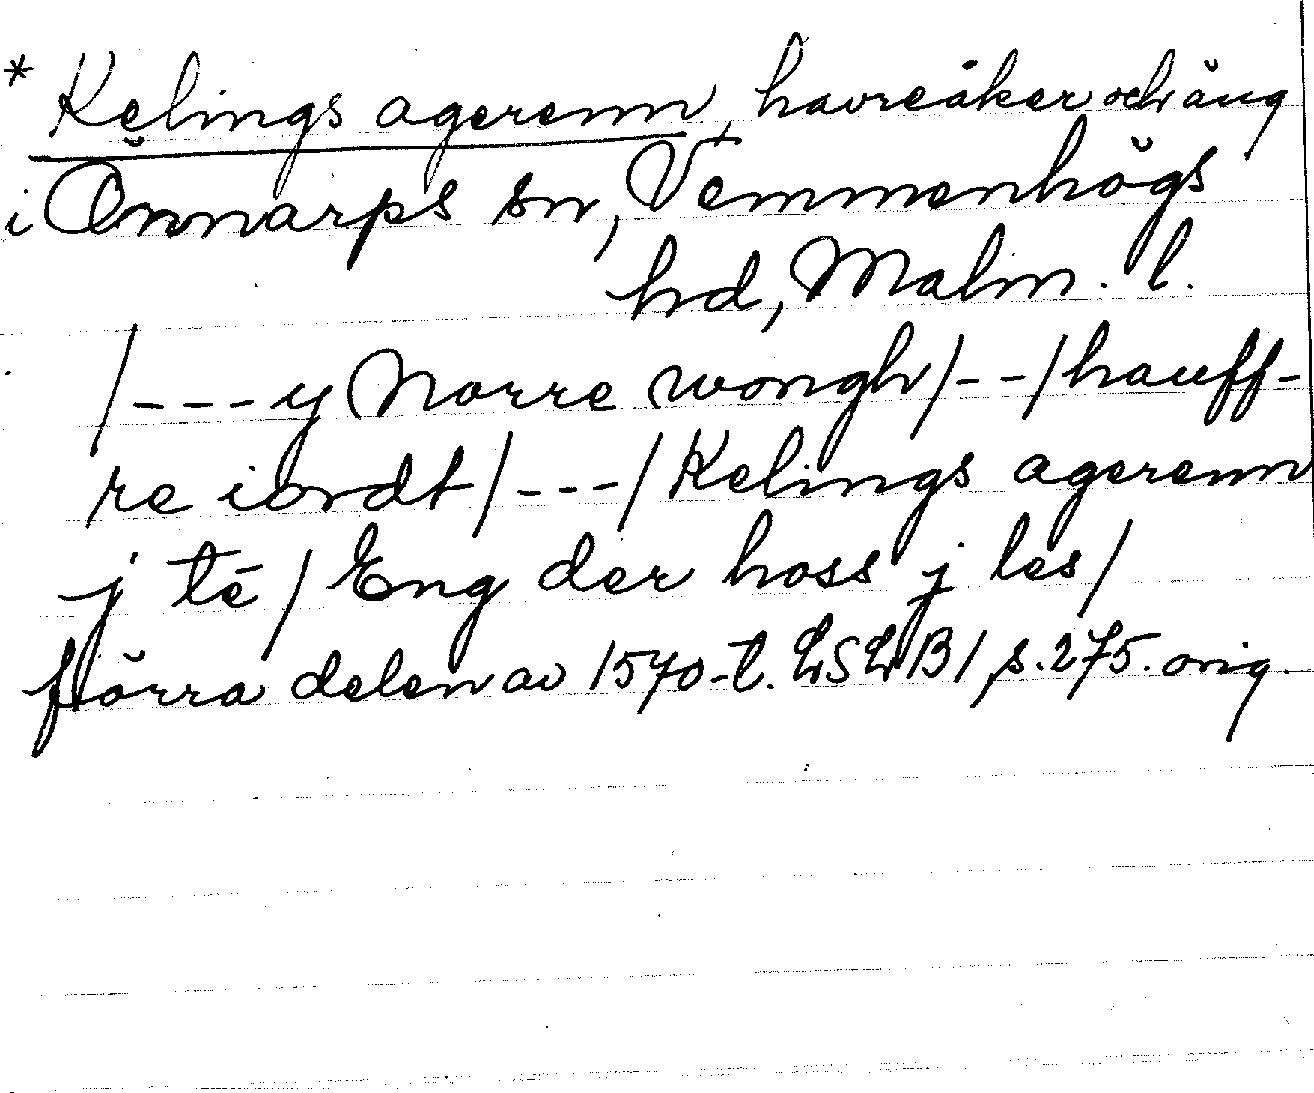 * Kelings agerenn, havreåker och äng
i Önnarps sn, Vemmenhögs
hd, Malm. l.
/---y Norre wongh/--/hauff-
re iordt/---/Kelings agerenn
j tē/Eng der hoss j les/
förra delen av 1570-t. LSLB1, s.275. orig.